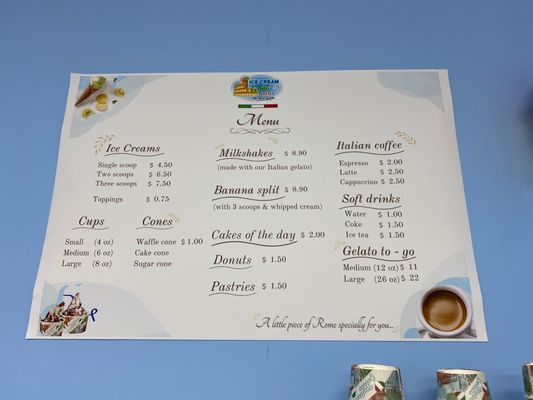 ICE CREAM
Menu
Ice Creams
Single scoop $ 4.50
Two scoops $ 6.50
Three scoops $ 7.50
Toppings $ 0.75
Cups
Small (4 oz)
Medium (6 oz)
Large (8 oz)
Cones
Waffle cone $ 1.00
Cake cone
Sugar cone
Milkshakes $ 8.90
(made with our Italian gelato)
Banana split $ 8.90
(with 3 scoops & whipped cream)
Cakes of the day $ 2.00
Donuts $ 1.50
Pastries $ 1.50
Italian coffee
Espresso $ 2.00
Latte $ 2.50
Cappuccino $ 2.50
Soft drinks
Water $ 1.00
Coke $ 1.50
Ice tea $ 1.50
Gelato to - go
Medium (12 oz) $ 11
Large (26 oz) $ 22
A little piece of Rome specially for you...